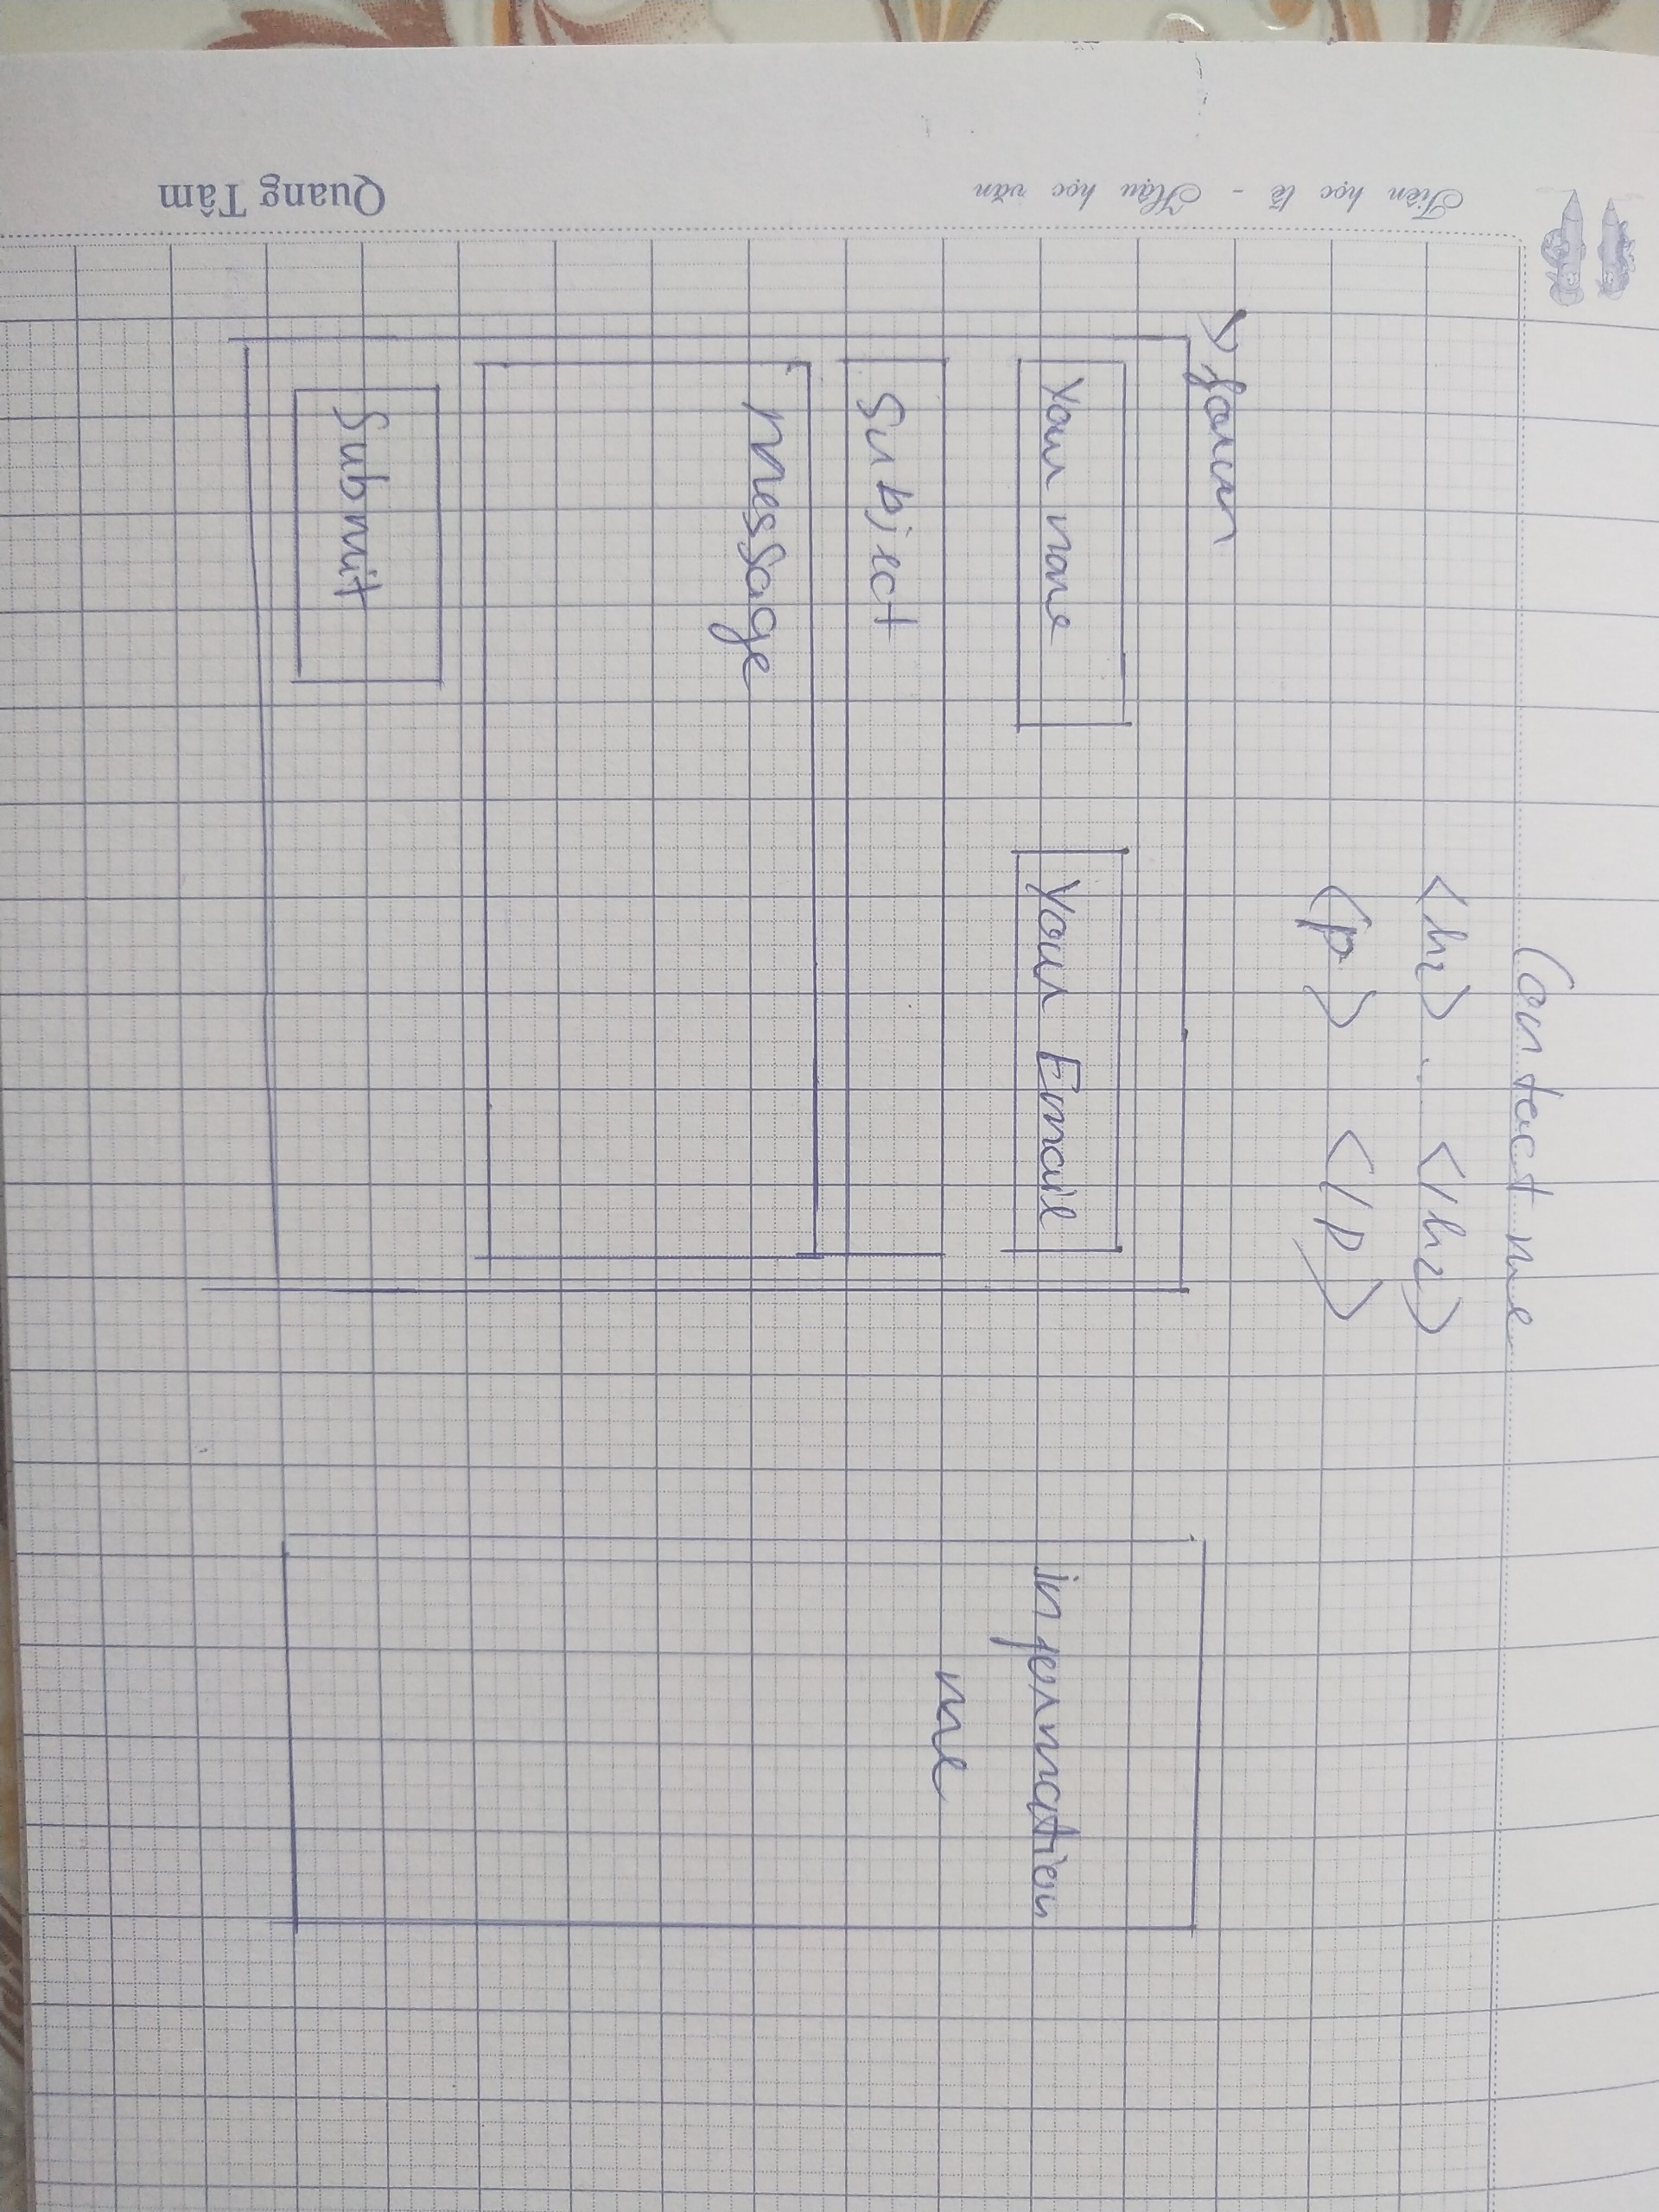 Contact me
<h2> ... </h2>
<p> </p>
form
Your name
Your Email
Subject
message
Submit
information
me
Tiên học lễ - Hậu học văn
Quang Tâm